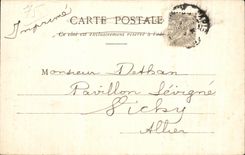 CARTE POSTALE
Ce côté est exclusivement réservé à l'adresse
Imprimé
Monsieur Dethan
Pavillon Sévigné
Vichy
Allier